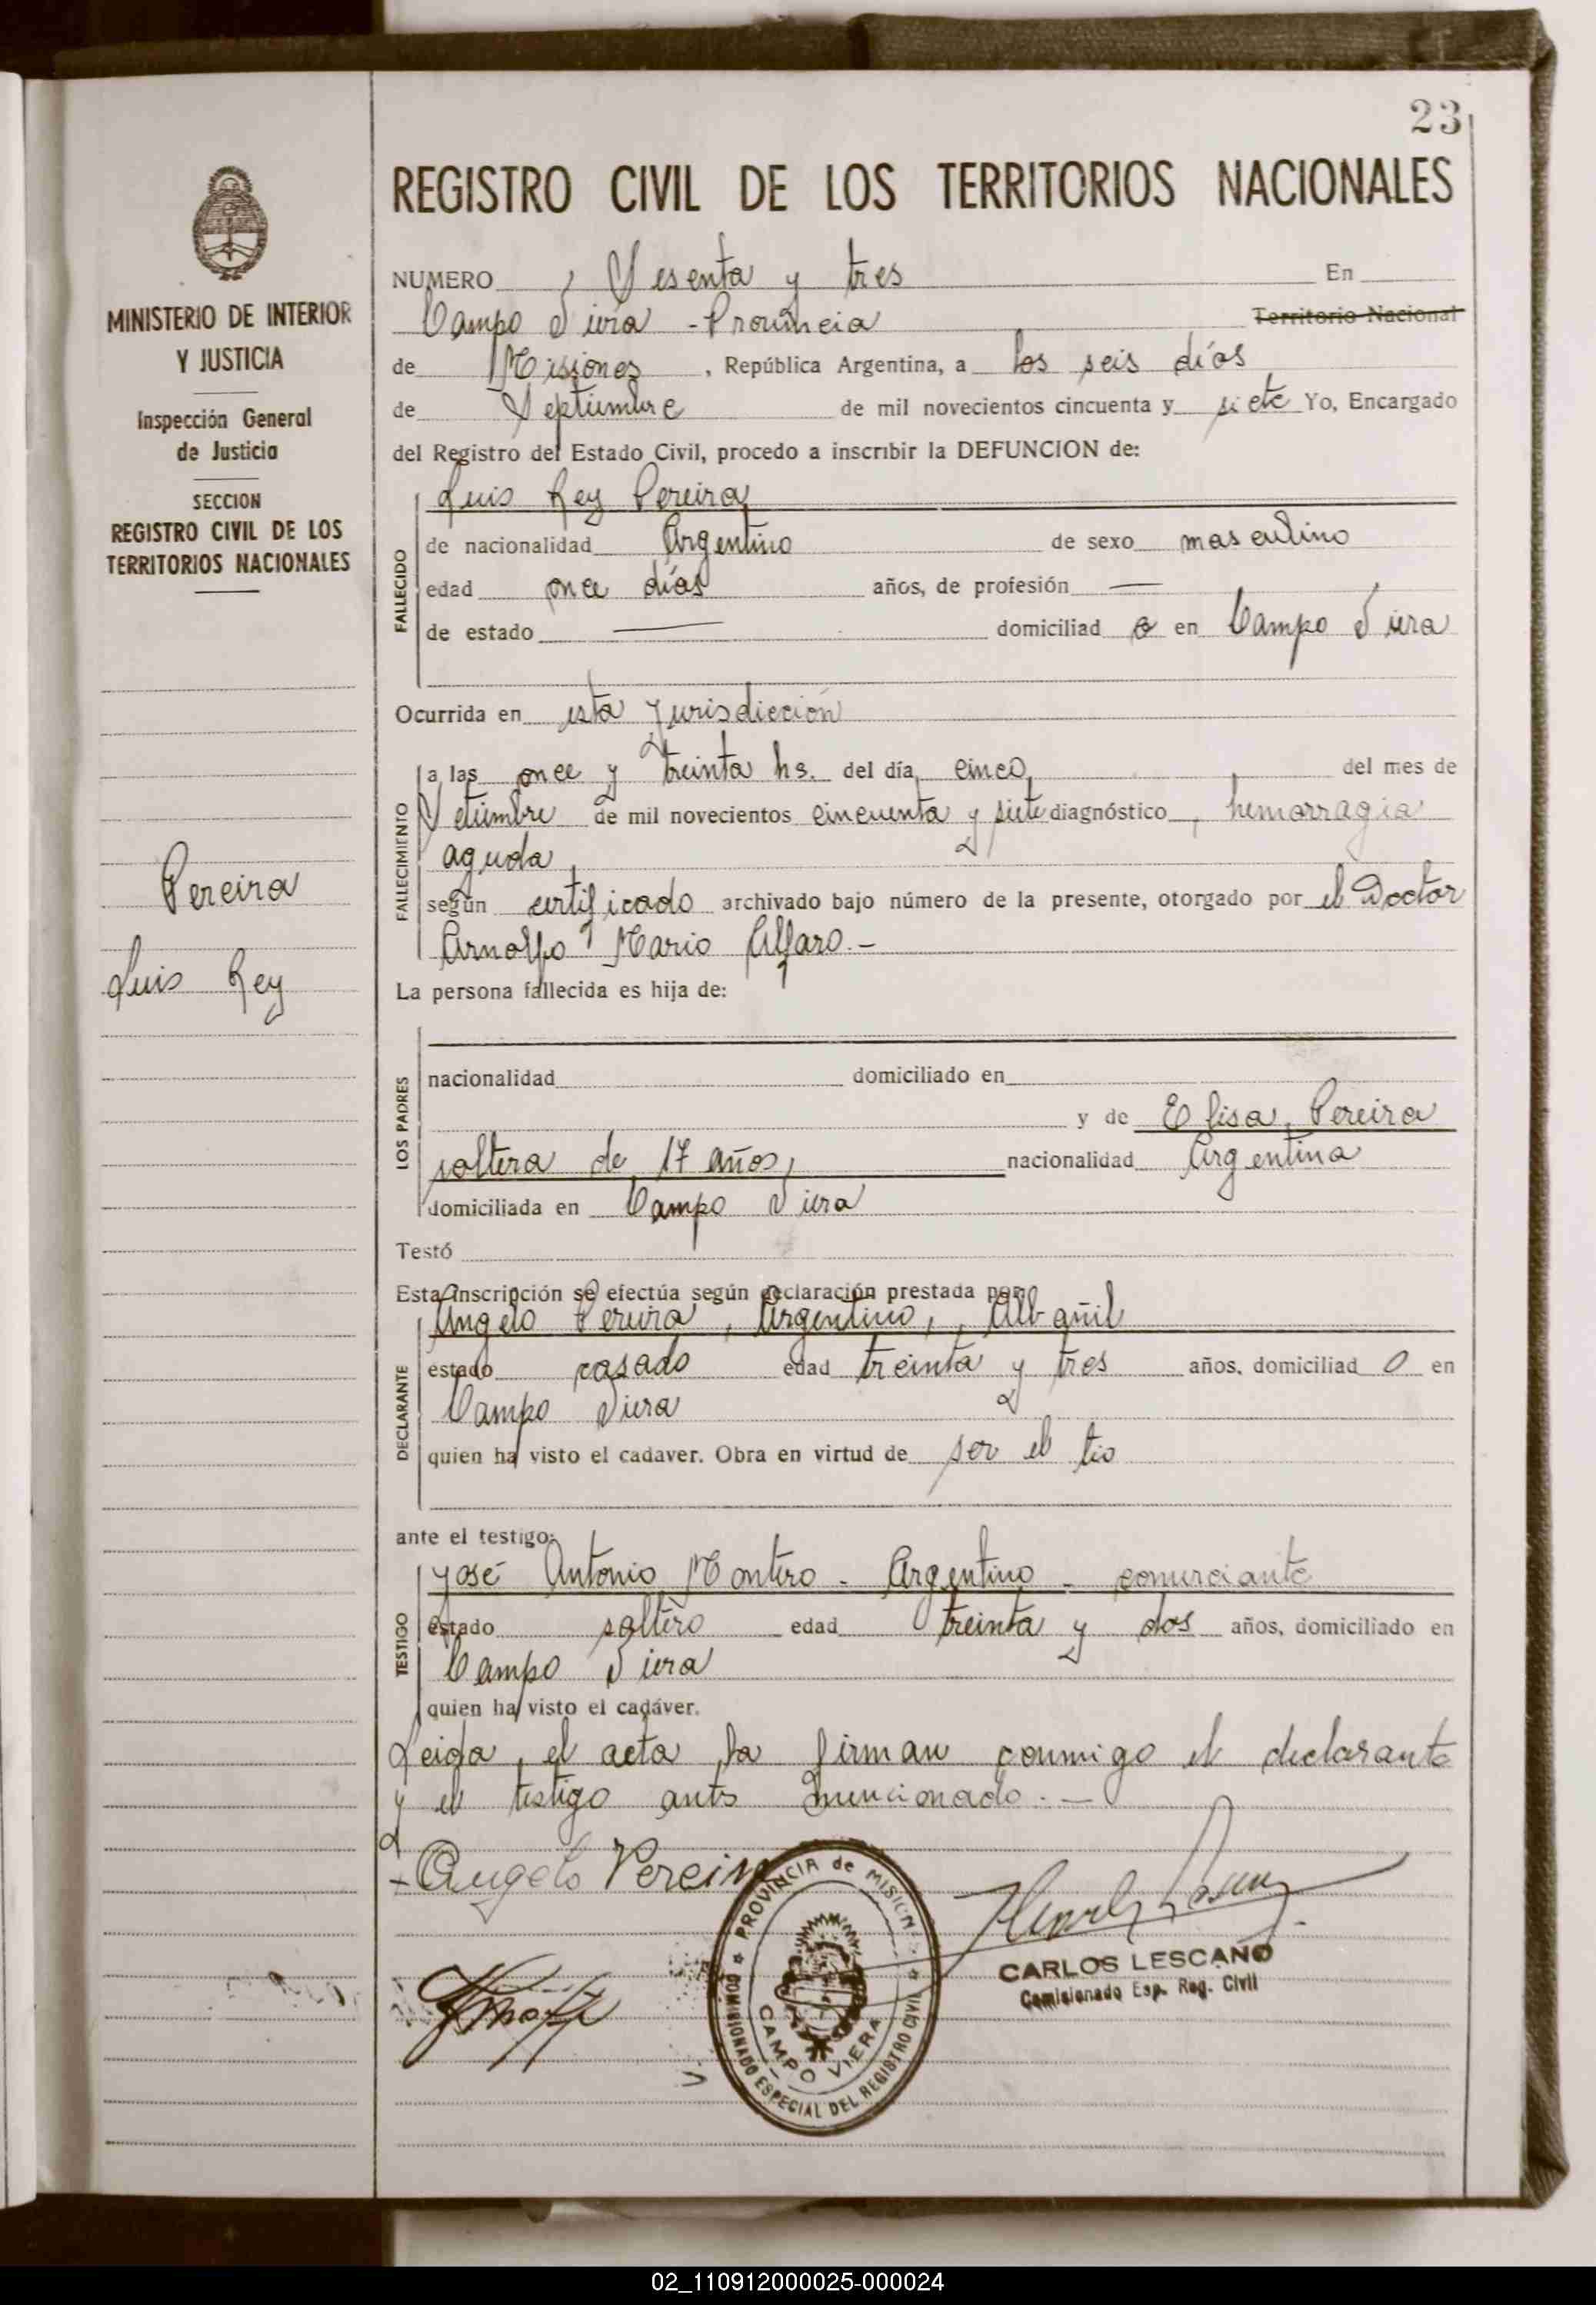 23
REGISTRO CIVIL DE LOS TERRITORIOS NACIONALES
MINISTERIO DE INTERIOR
Y JUSTICIA
Inspección General
de Justicia
SECCION
REGISTRO CIVIL DE LOS
TERRITORIOS NACIONALES
Pereira
Luis Rey
NUMERO Sesenta y tres En
Campo Viera - Provincia Territorio Nacional
de Misiones, República Argentina, a los seis días
de Septiembre de mil novecientos cincuenta y siete Yo, Encargado
del Registro del Estado Civil, procedo a inscribir la DEFUNCION de:
FALLECIDO
Luis Rey Pereira
de nacionalidad Argentino de sexo masculino
edad once días años, de profesión —
de estado — domiciliad o en Campo Viera
Ocurrida en esta Jurisdicción
FALLECIMIENTO
a las once y treinta hs. del día cinco del mes de
Setiembre de mil novecientos cincuenta y siete diagnóstico, hemorragia
aguda
según certificado archivado bajo número de la presente, otorgado por el Doctor
Arnolfo Mario Alfaro.-
La persona fallecida es hija de:
LOS PADRES
nacionalidad domiciliado en
y de Elisa Pereira
soltera de 17 años, nacionalidad Argentina
domiciliada en Campo Viera
Testó
Esta inscripción se efectúa según declaración prestada por:
DECLARANTE
Angelo Pereira, Argentino, Albañil
estado casado edad treinta y tres años, domiciliad o en
Campo Viera
quien ha visto el cadaver. Obra en virtud de ser el tio
ante el testigo:
TESTIGO
José Antonio Montero - Argentino - comerciante
estado soltero edad treinta y dos años, domiciliado en
Campo Viera
quien ha visto el cadáver.
Leida el acta la firman conmigo el declarante
y el testigo antes mencionado.—
Angelo Pereira
PROVINCIA de MISIONES
COMISIONADO ESPECIAL DEL REGISTRO CIVIL
CAMPO VIERA
CARLOS LESCANO
Comisionado Esp. Reg. Civil
02_110912000025-000024